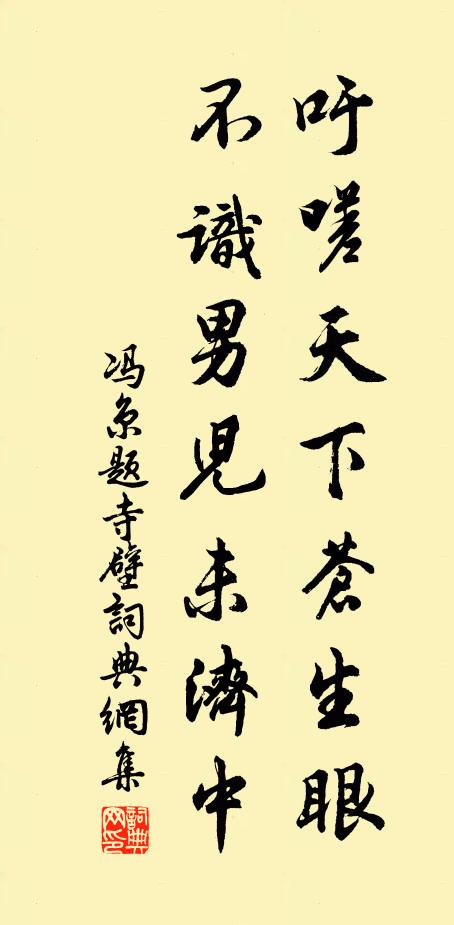 吁嗟天下蒼生眼
不識男兒未濟中
冯京题寺壁詞典網集
詞典網印